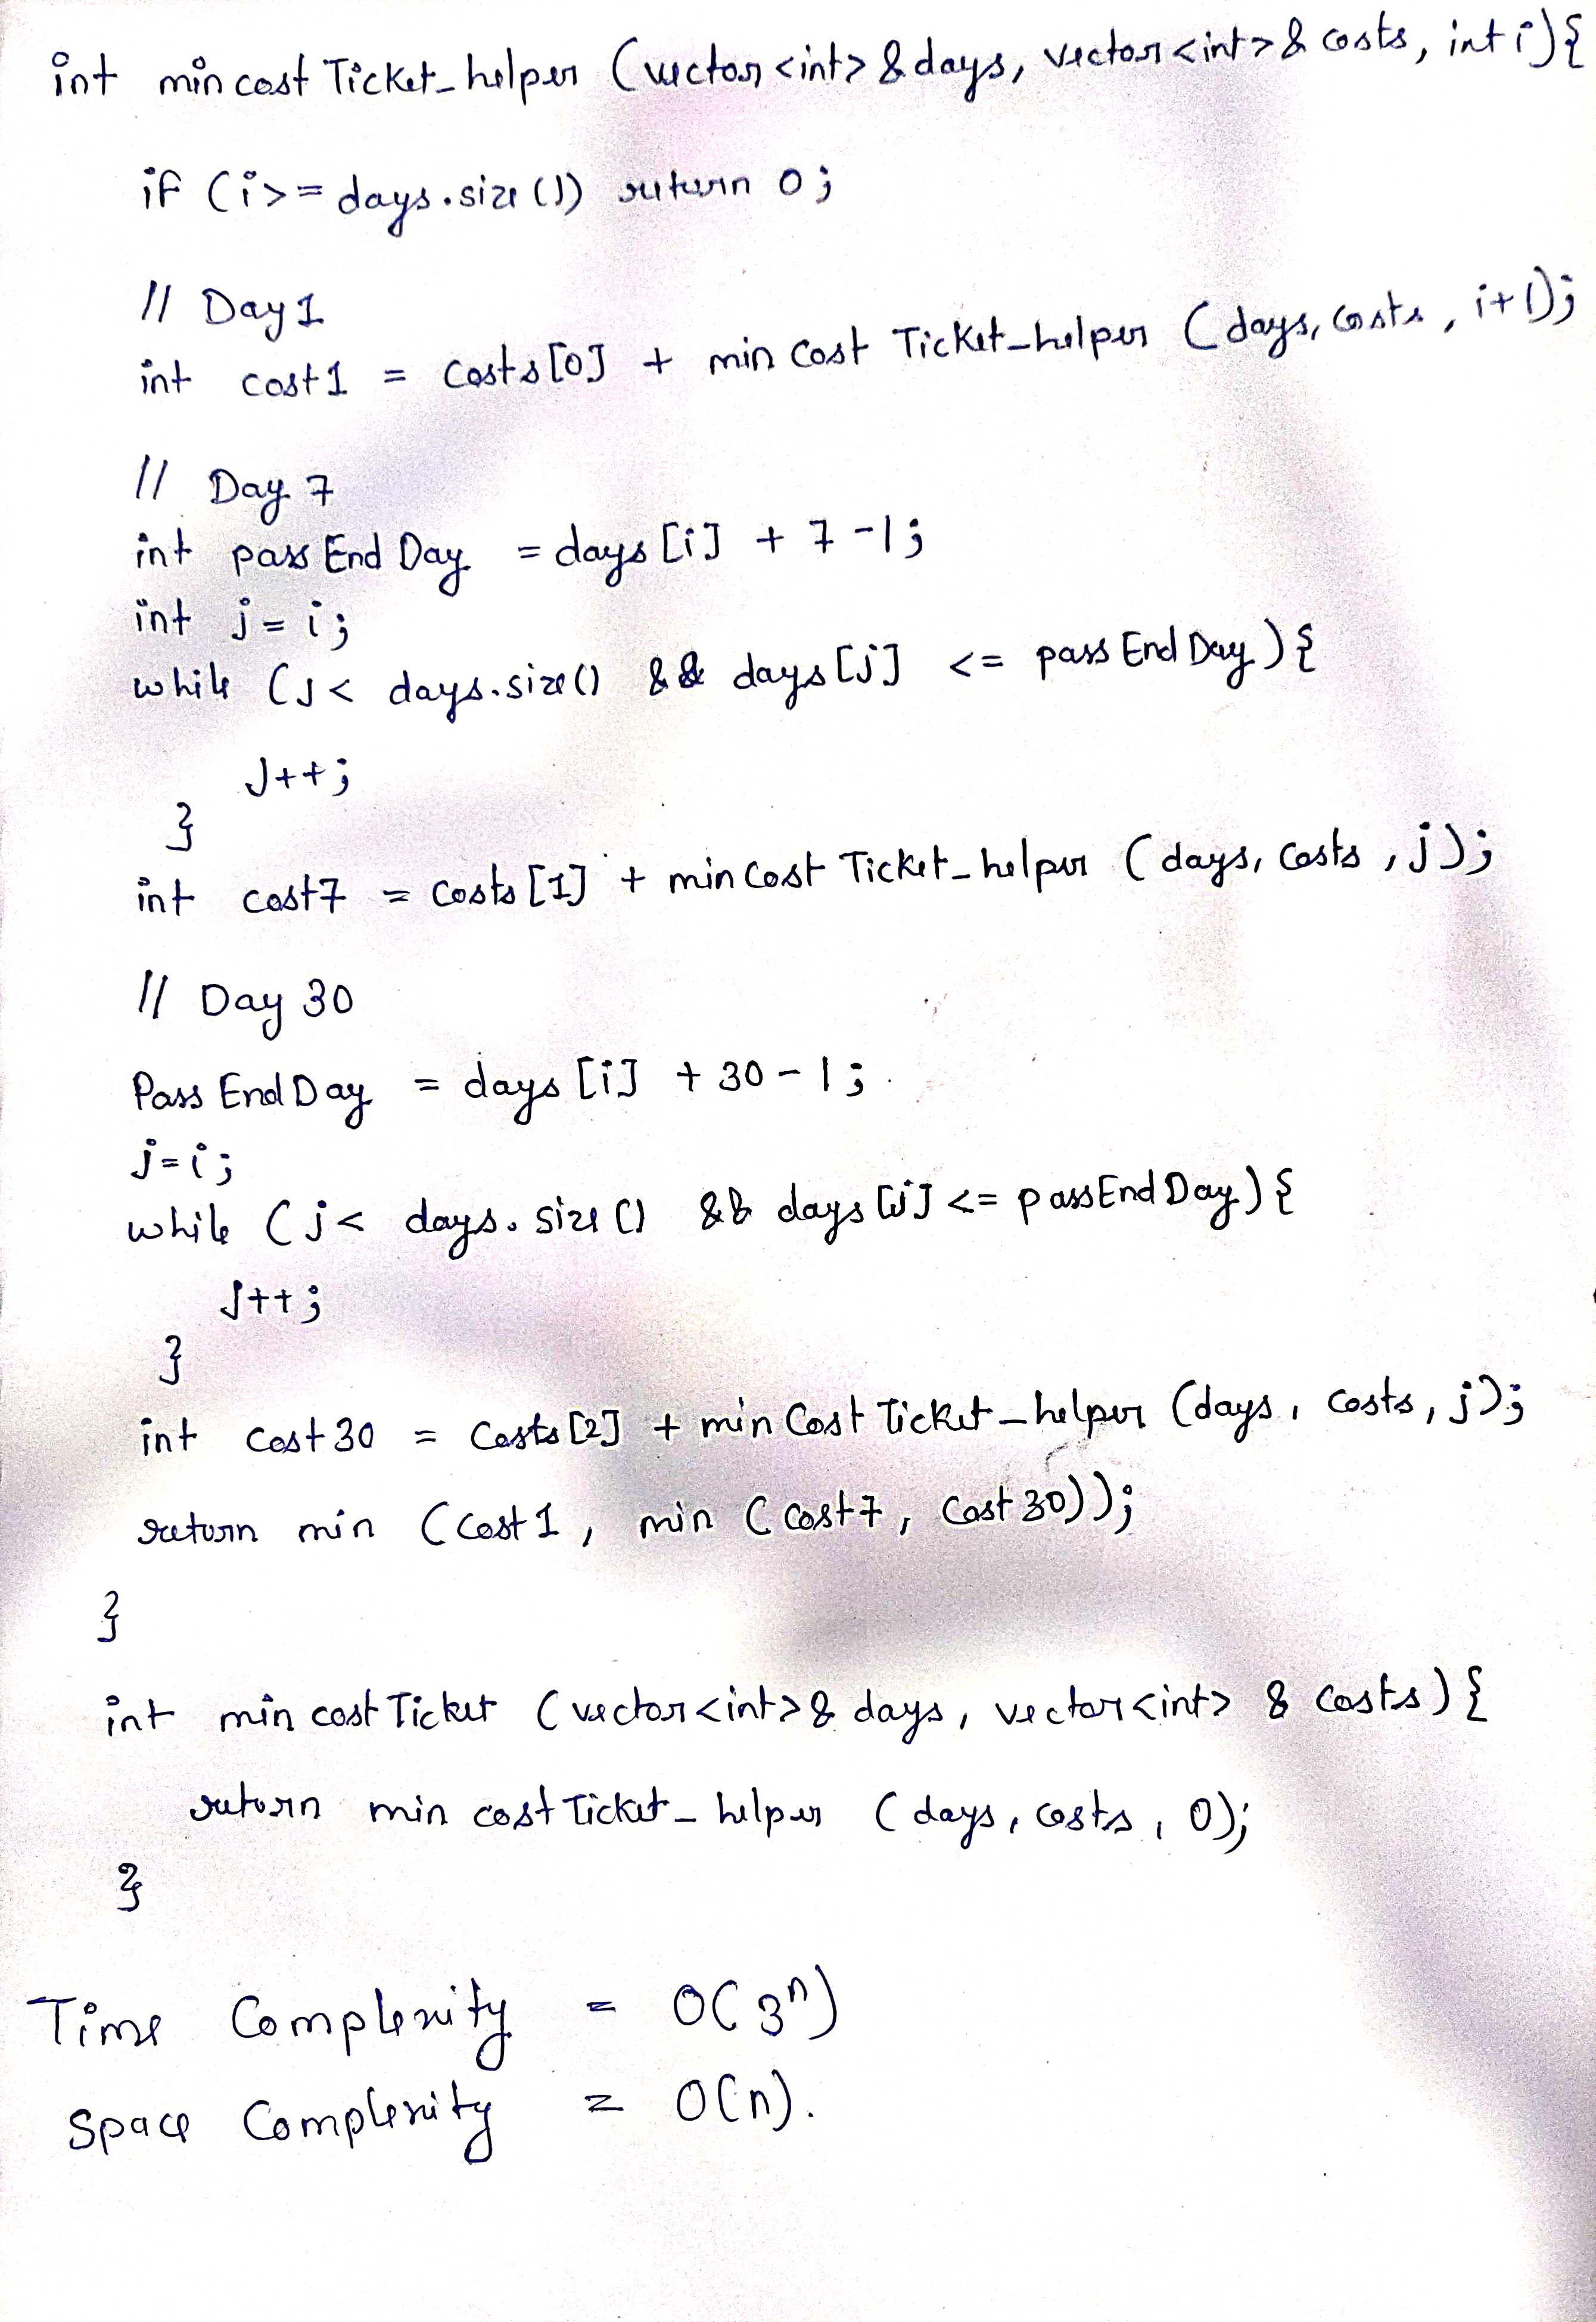 int mincostTicket_helper (vector<int> &days, vector<int>& costs, int i){
if (i>= days.size()) return 0;
// Day 1
int cost1 = costs[0] + mincostTicket_helper (days, costs, i+1);
// Day 7
int passEndDay = days[i] + 7 -1;
int j = i;
while (j< days.size() && days[j] <= passEndDay){
j++;
}
int cost7 = costs[1] + mincostTicket_helper (days, costs, j);
// Day 30
PassEndDay = days[i] + 30 - 1;
j=i;
while (j< days.size() && days[j] <= passEndDay){
j++;
}
int cost30 = costs[2] + minCostTicket_helper (days, costs, j);
return min (cost1, min (cost7, cost30));
}
int mincostTicket (vector<int>& days, vector<int> & costs){
return mincostTicket_helper (days, costs, 0);
}
Time Complexity = O(3^n)
Space Complexity = O(n).